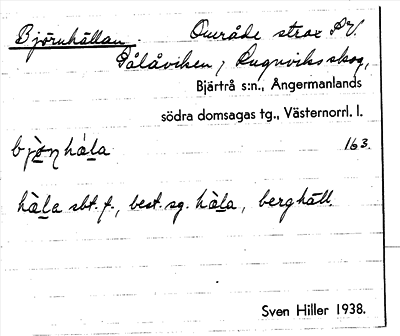 Björnhällan. Område strax S.V.
Pålåviken, Lugnviks skog,
Bjärtrå s:n., Ångermanlands
södra domsagas tg., Västernorrl. l.
bjò̱ŋhá̱la 163.
hà̱la sbt. f., best. sg. hà̱la, berghäll.
Sven Hiller 1938.